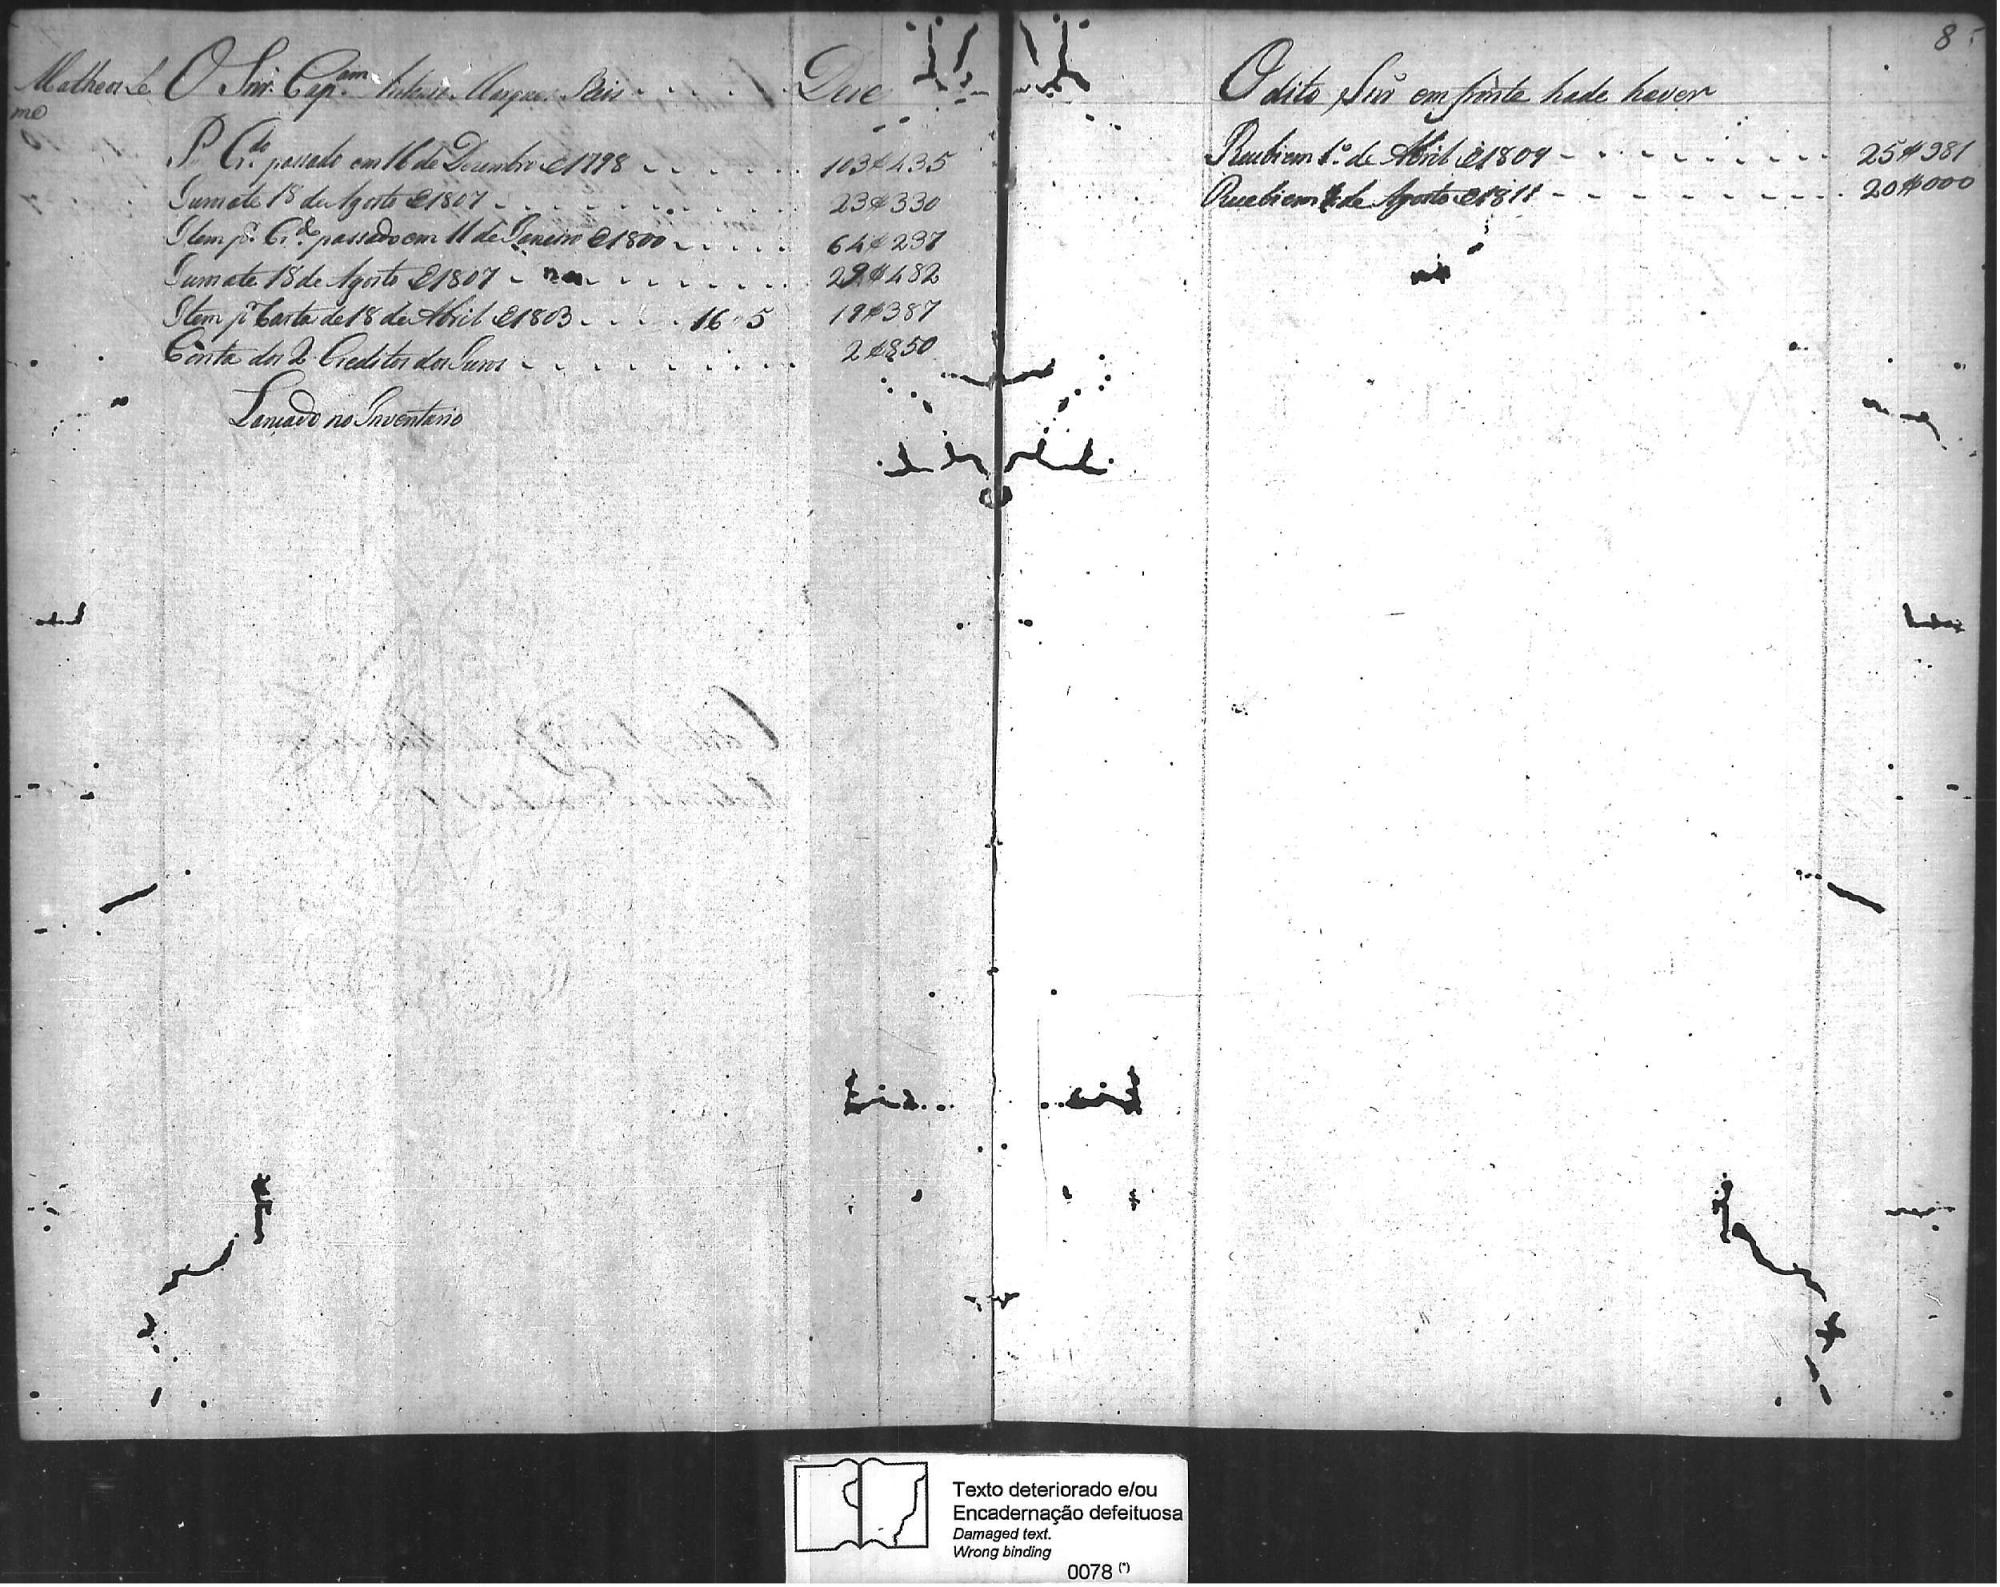 Matheos Le
me
O Snr. Cap.am Antonio Marques Reis Deve
P. Cr.do passado em 16 de Dezembro de 1798 103$435
Juro ate 18 de Agosto de 1807 23$330
Item p.r Cr.do passado em 11 de Janeiro de 1800 64$237
Juro ate 18 de Agosto de 1807 29$482
Item p.r Carta de 18 de Abril de 1803 16 5 19$387
Conta dos 2 Creditos dos Juros 2$850
Lansado no Inventario
8
O dito Snr em fronte hade haver
Recebi em 1.o de Abril de 1809 25$981
Recebi em de Agosto de 1811 20$000
Texto deteriorado e/ou
Encadernação defeituosa
Damaged text.
Wrong binding
0078 (*)